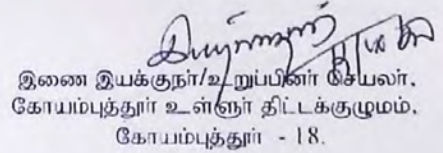 இணை இயக்குநர்/உறுப்பினர் செயலர்,
கோயம்புத்தூர் உள்ளூர் திட்டக்குழுமம்,
கோயம்புத்தூர் - 18.